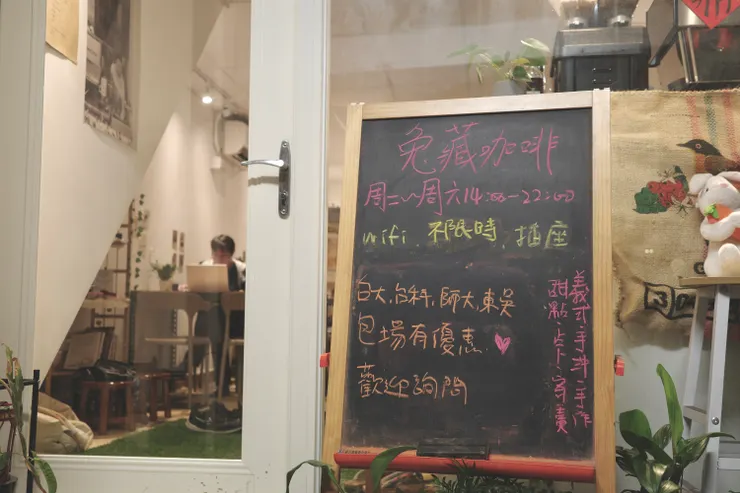 兔藏咖啡
周二~周六14:00-22:00
wifi 不限時 插座
台大,台科,師大,東吳
包場有優惠
歡迎詢問
義式・手沖・手作
甜點・占卜・寄賣